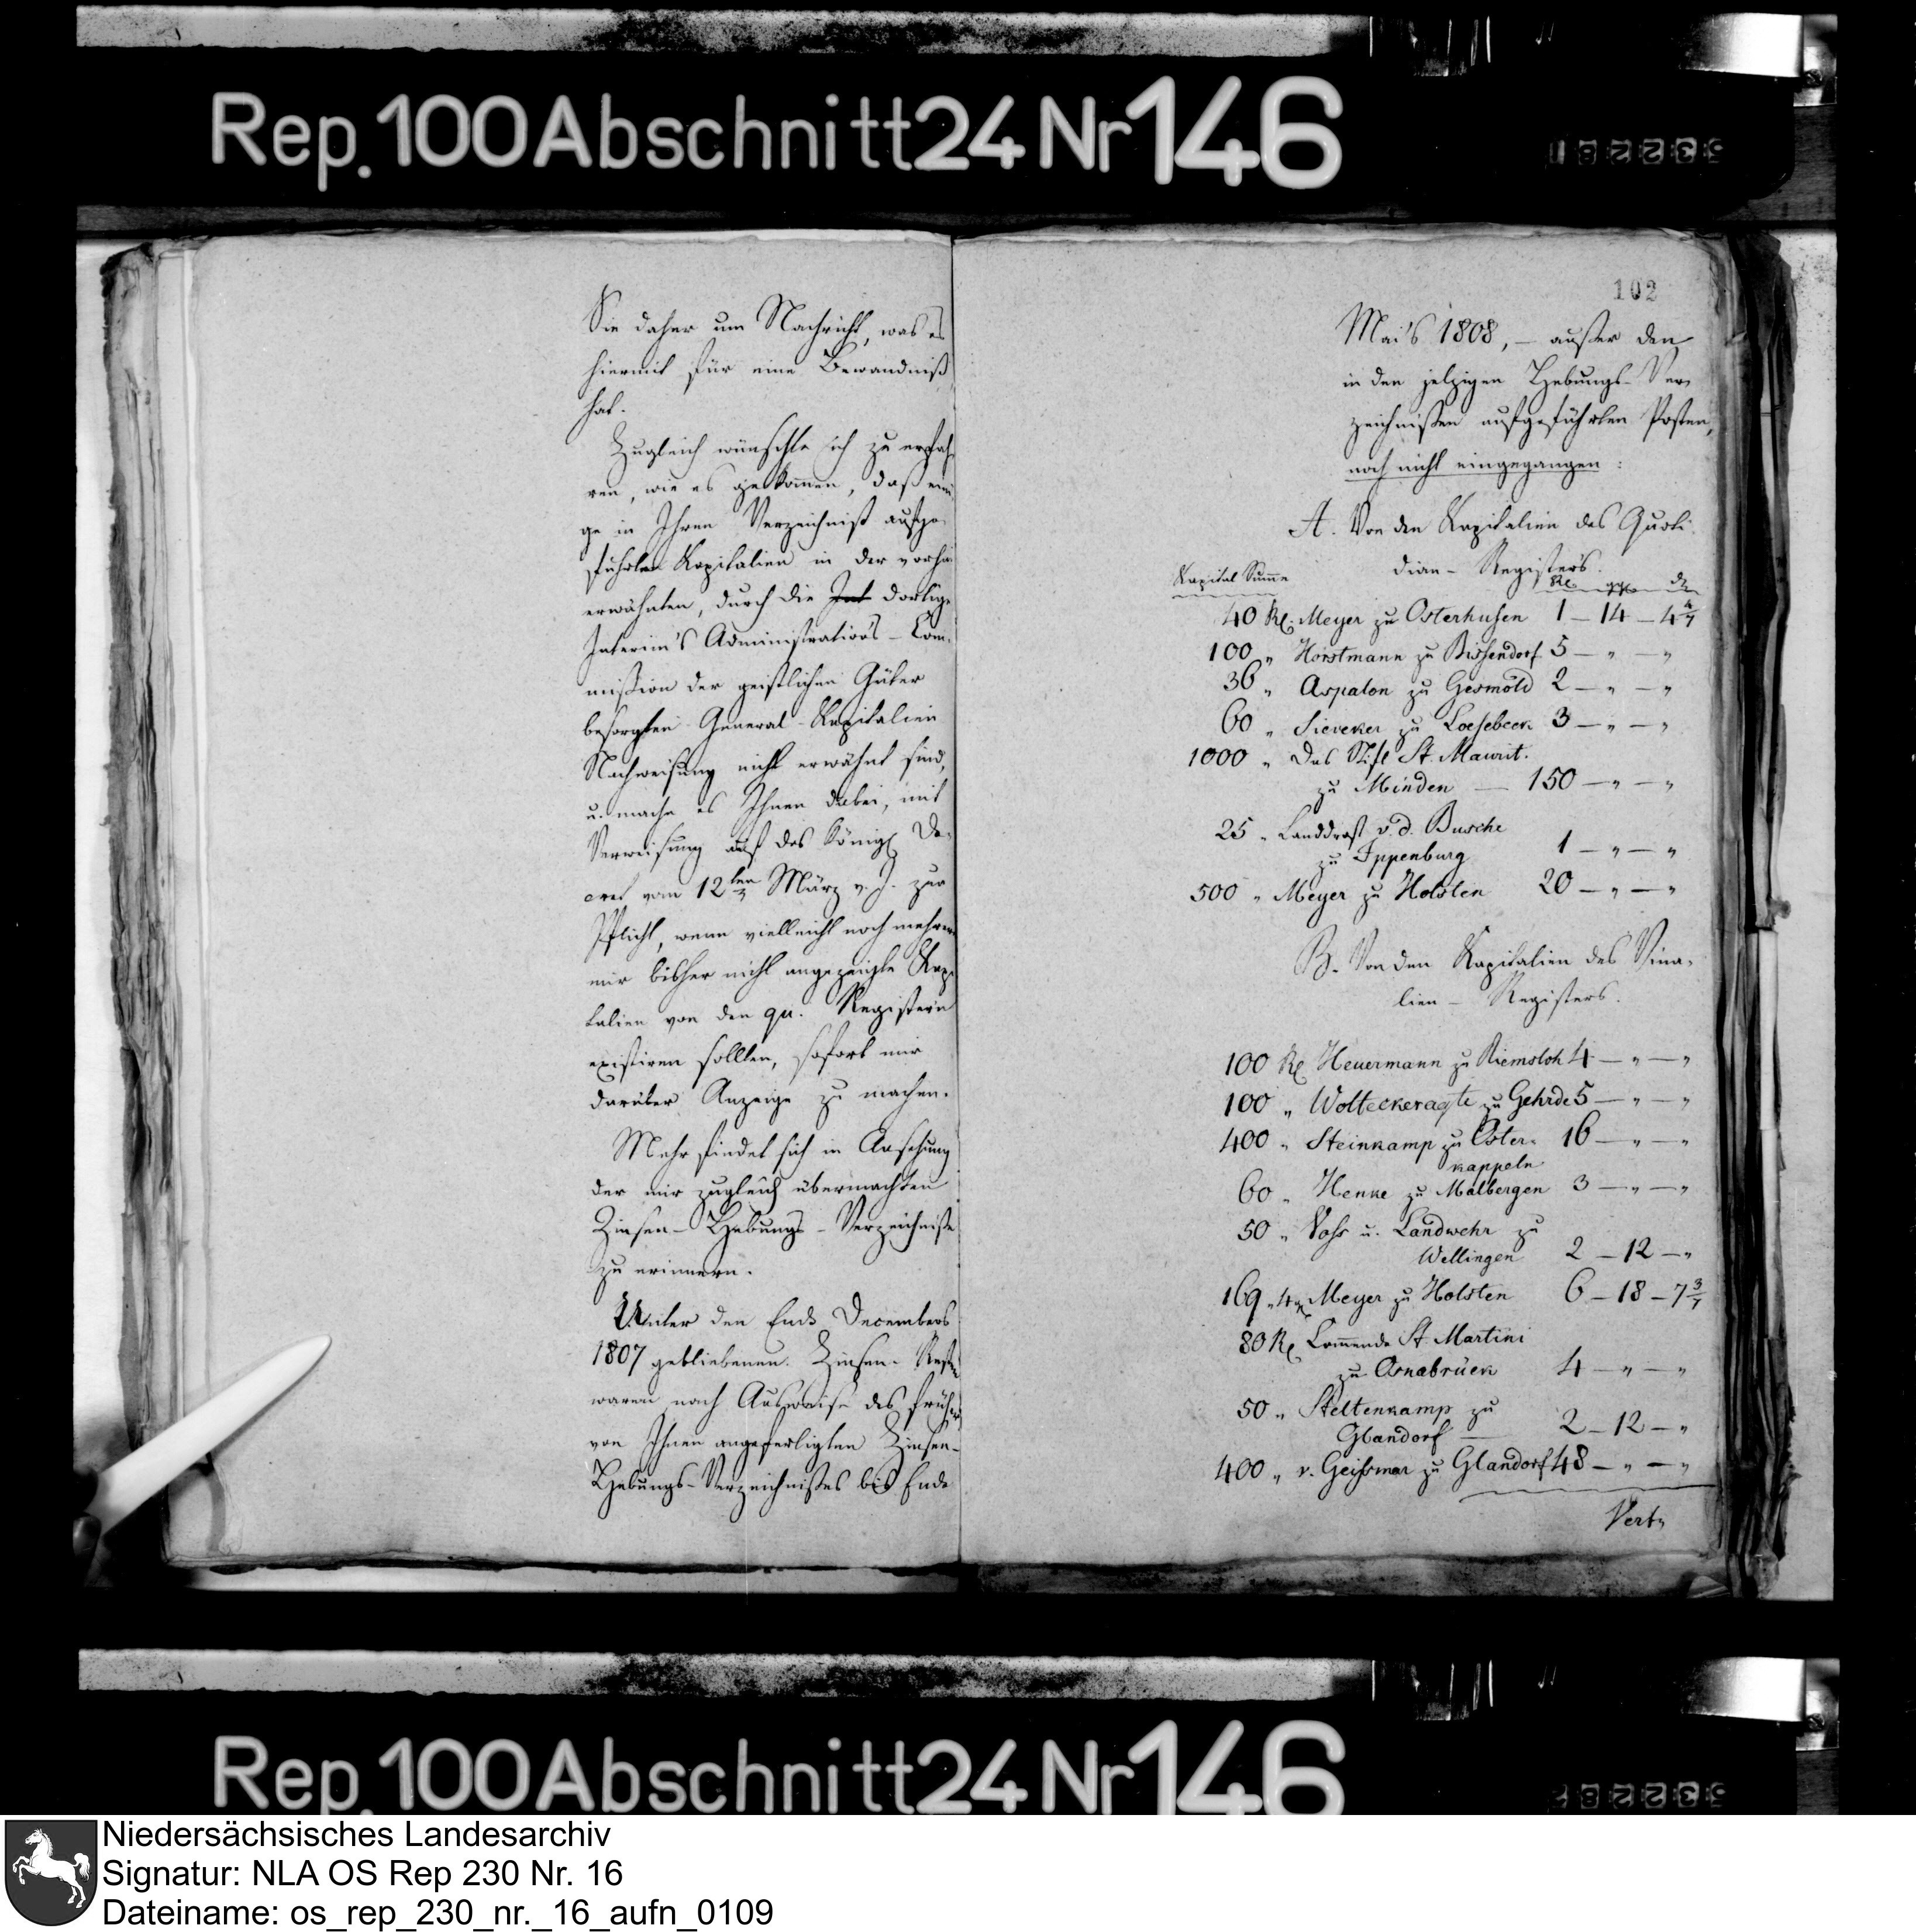 Rep. 100 Abschnitt 24 Nr 146
532281
Sie daher um Nachricht, was es
hiermit für eine Bewandniß
hat.
Zugleich wünschte ich zu erfah-
ren, wie es gekommen, daß eini-
ge in Ihren Verzeichniß aufge-
führten Kapitalien in der vorhin
erwähnten, durch die Int dortige
Interim's Administrations-Com-
mission der geistlichen Güter
besorgten General-Kapitalien
Nachweisung nicht erwähnt sind,
u. mache es Ihnen dabei, mit
Verweisung auf das Königl De-
cret vom 12ten März v. J. zur
Pflicht, wenn vielleicht noch mehrere
mir bisher nicht angezeigte Kapi-
talien von den qu. Registern
existiren sollten, sofort mir
darüber Anzeige zu machen.
Mehr findet sich in Ansehung
der mir zugleich übermachten
Zinsen-Hebungs-Verzeichniße
zu erinnern.
Unter den Ende Decembers
1807 gebliebenen Zinsen-Resten
waren nach Ausweise des früher
von Ihnen angefertigten Zinsen-
Hebungs-Verzeichnißes bis Ende
102
Mai's 1808, – außer den
in den jetzigen Hebungs-Ver-
zeichnißen aufgeführten Posten,
noch nicht eingegangen:
A. Von den Kapitalien des Quoti-
dian-Registers.
Kapital Summe Rl. ggr d
40 Rl. Meyer zu Osterhusen 1 – 14 – 4 4/7
100 " Horstmann zu Bissendorf 5 – " – "
36 " Aspalon zu Gesmold 2 – " – "
60 " Sieveker zu Loesebeck 3 – " – "
1000 " Das Stift St. Maurit.
zu Minden — 150 – " – "
25 " Landdrost v. d. Busche
zu Ippenburg 1 – " – "
500 " Meyer zu Holsten 20 – " – "
B. Von den Kapitalien des Vina-
lien-Registers.
100 Rl Heuermann zu Riemsloh 4 – " – "
100 " Wolteckeragte zu Gehrde 5 – " – "
400 " Steinkamp zu Oster- 16 – " – "
kappeln
60 " Henke zu Malbergen 3 – " – "
50 " Voss u. Landwehr zu
Wellingen 2 – 12 – "
169 " 4 gr Meyer zu Holsten 6 – 18 – 7 3/7
80 Rl Commende St Martini
zu Osnabrück 4 – " – "
50 " Steltenkamp zu
Glandorf — 2 – 12 – "
400 " v. Geissmar zu Glandorf 48 – " – "
Vert.
Rep. 100 Abschnitt 24 Nr 146
Niedersächsisches Landesarchiv
Signatur: NLA OS Rep 230 Nr. 16
Dateiname: os_rep_230_nr._16_aufn_0109